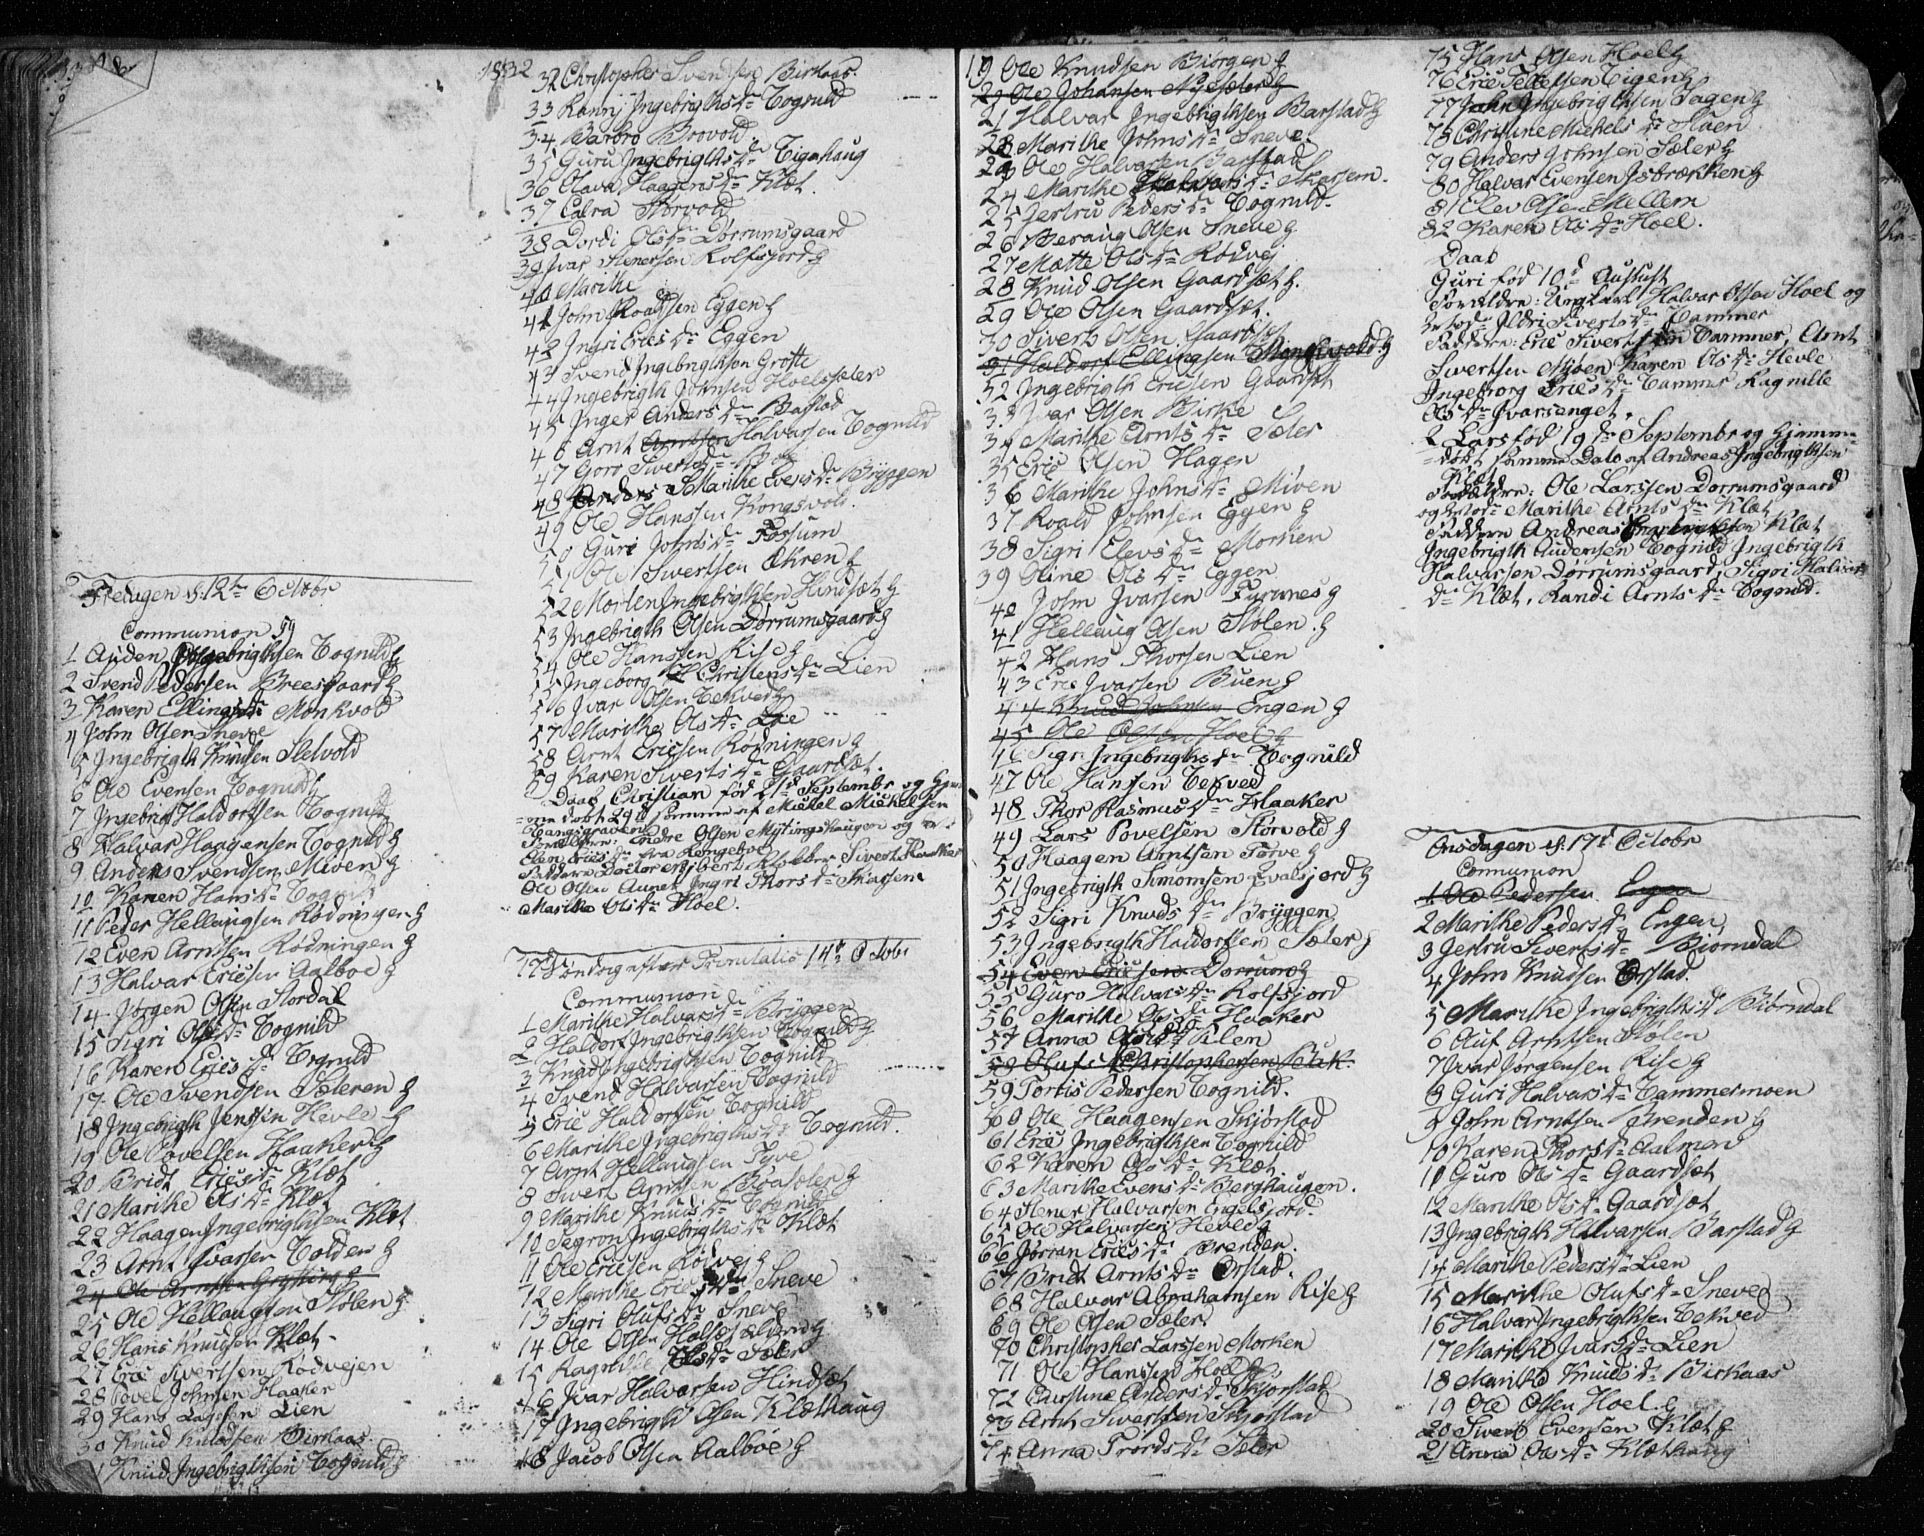 1832
Fredagen d. 12te Octobr
Communion 59
1 Auden Ingebrigthsen Tognild g
2 Svend Pedersen Breesgaard g
3 Karen Ellings Dr Monkvold
4 John Olsen Sneve
5 Ingebrigth Knudsen Sletvold
6 Ole Evensen Tognild
7 Ingebrigth Haldorsen Tognild
8 Halvar Haagensen Tognild g
9 Anders Svendsen Mioen g
10 Karen Hans Dr Tognild
11 Peder Hellaugsen Rødningen g
12 Even Arntsen Rødningen g
13 Halvar Ericsen Aalboe g
14 Jørgen Olsen Stordal
15 Sigri Ols Dr Tognild
16 Karen Erics Dr Tognild
17 Ole Svendsen Sæteren g
18 Ingebrigth Jensen Hevle g
19 Ole Povelsen Haaker g
20 Bridt Erics Dr Klæt
21 Marithe Ols Dr Klæt
22 Haagen Ingebrigthsen Klæt
23 Arnt Ivarsen Tolden g
24 Ole Arntsen
25 Ole Hellaugsen Stølen g
26 Hans Knudsen Klæt
27 Eric Sivertsen Rødvejen
28 Povel Johnsen Haaker
29 Hans Larssen Lien
30 Knud Knudsen Birkaas
31 Knud Ingebrigthsen Tognild g
32 Christopher Svendsen Birkaas
33 Ranny Ingebrigths Dr Tognild
34 Barbro Brovold
35 Guru Ingebrigths Dr Tigahaug
36 Olava Haagens Dr Klæt
37 Størvold
38 Dordi Ols Dr Dørrumsgaard
39 Ivar Stenersen Rolfsjord g
40 Marithe
41 John Roaldsen Eggen g
42 Ingri Erics Dr Eggen
43 Svend Ingebrigthsen Grøtte
44 Ingebrigth Johnsen Hoelssæter
45 Inger Anders Dr Barstad
46 Arnt Arntsen Halvarsen Tognild
47 Goro Siverts Dr
48 Anders Marithe Evens Dr Bryggen
49 Ole Hanssen Kongsvold
50 Guri Johns Dr Fossum
51 Ole Sivertsen Økren g
52 Morten Ingebrigthsen Hindsæt g
53 Ingebrigth Olsen Dørrumsgaard g
54 Ole Hanssen Rise g
55 Ingeborg Christens Dr Lien
56 Ivar Olsen Tekved g
57 Marithe Ols Dr Lie
58 Arnt Ericsen Rødningen g
59 Karen Siverts Dr Gaardsæt
Daab Christian fød 21d Septembr og Hjem
me døbt 29d samme af Mickel Mickelsen
Vangsgraven
Forældre: Endre Olsen Mytingshaugen og
Elen Erics Dr fra Ringeboe
Faddere Doctor Klokker Sivert Haaker
Ole Olsen Aunet Ingri Thors Dr Skarsem
Marithe Ols Dr Hoel.
17d Søndag efter Trinitatis 14de Octobr
Communion
1 Marithe Halvars Dr Bryggen
2 Haldor Ingebrigthsen Tognild g
3 Knud Ingebrigthsen Tognild
4 Svend Halvarsen Tognild
5 Eric Haldorsen Tognild
6 Marithe Ingebrigths Dr Tognild
7 Arnt Hellaugsen Tøve
8 Sivert Arntsen Boasæter g
9 Marithe Knuds Dr Tognild
10 Segron Ingebrigths Dr Klæt
11 Ole Ericsen Rødvej g
12 Marithe Erics Dr Sneve
13 Sigri Olufs Dr Sneve
14 Ole Olsen
15 Ragnilde Ols Dr Sæter
16 Ivar Halvarsen Hindsæt
17 Ingebrigth Olsen Klæthaug
18 Jacob Olsen Aalboe g
19 Ole Knudsen Biørgen g
20 Ole Johansen Nysæter g
21 Halvar Ingebrigthsen Barstad g
22 Marithe Johns Dr Sneve
23 Ole Halvarsen Barstad
24 Marithe Halvars Dr Skarsem
25 Jertru Peders Dr Tognild
26 Beraug Olsen Sneve g
27 Matte Ols Dr Rødvej
28 Knud Olsen Gaardsæt g
29 Ole Olsen Gaardsæt
30 Sivert Olsen Gaardsæt
31 Haldor Ellingsen g
32 Ingebrigth Ericsen Gaardsæt
33 Ivar Olsen Birke
34 Marithe Arnts Dr Sæter
35 Eric Olsen Hagen
36 Marithe Johns Dr Mioen
37 Roald Johnsen Eggen g
38 Sigri Elevs Dr Morken
39 Oline Ols Dr Eggen
40 John Ivarsen Furunes g
41 Hellaug Olsen Stølen g
42 Hans Thorsen Lien
43 Eric Ivarsen Buen g
44 Knud Johnsen Engen g
45 Ole Olsen Hoel g
46 Sigri Ingebrigths Dr Tognild
47 Ole Hanssen Tekved
48 Thor Rasmus Haaker
49 Lars Povelsen Størvold g
50 Haagen Arntsen Tørve g
51 Ingebrigth Simonsen g
52 Sigri Knuds Dr Bryggen
53 Ingebrigth Haldorsen Sæter g
54 Even Ericsen Dørrum g
55 Guro Halvars Dr Rolfsjord
56 Marithe Ols Dr Haaker
57 Anna Ols Dr
58 Oluf Christophersen
59 Tortis Pedersen Tognild
60 Ole Haagensen Skjørstad
61 Eric Ingebrigthsen Tognild
62 Karen Ols Dr Klæt
63 Marithe Evens Dr Berghaugen
64 Stener Halvarsen Engelsjord
65 Ole Halvarsen Hevle g
66 Jørran Erics Dr Brenden
67 Bridt Arnts Dr Ørstad
68 Halvar Abrahamsen Rise g
69 Ole Olsen Sæter
70 Christopher Larssen Morken
71 Ole Hanssen Hoel
72 Anders Dr Skjørstad
73 Arnt Sivertsen Skjørstad
74 Anna Trords Dr Sæter
75 Hans Olsen Hoel g
76 Eric Tigen g
77 John Ingebrigthsen Tagen g
78 Christine Michels Dr Støen
79 Anders Johnsen Sæter g
80 Halvar Evensen Isbrækken g
81 Elev Olsen Mellem
82 Karen Ols Dr Hoel
Daab
Guri fød 10d August
Forældre: Ungkarl Halvar Olsen Hoel og
Ildri Siverts Dr Tammer
Faddere: Eric Sivertsen Tammer, Arnt
Sivertsen Myøen Karen Ols Dr Hevle
Ingeborg Erics Dr Tammer Ragnille
Ols Dr Ivarsenget.
2 Lars fød 19de Septembr og Hjemme-
døbt samme Dato af Andreas Ingebrigthsen
Klæt
Forældre: Ole Larssen Dørrumsgaard
og Marithe Arnts Dr Klæt
Faddere Andreas Ingebrigthsen Klæt
Ingebrigth Audensen Tognild Ingebrigth
Halvarsen Dørrumsgaard, Sigri Halvars
Dr Klæt, Randi Arnts Dr Tognild.
Onsdagen d. 17de Octobr
Communion
1 Ole Pedersen Engen
2 Marithe Peders Dr Engen
3 Jertru Siverts Dr Biørndal
4 John Knudsen Ørstad
5 Marithe Ingebrigths Dr Biørndal
6 Arntsen Stølen
7 Ivar Jørgensen Rise g
8 Guri Halvars Dr Tammesmoen
9 John Arntsen Brenden g
10 Karen Thors Dr Aalmen
11 Guro Ols Dr Gaardsæt
12 Marithe Ols Dr Gaardsæt
13 Ingebrigth Halvarsen Barstad g
14 Marithe Peders Dr Lien
15 Marithe Olufs Dr Sneve
16 Halvar Ingebrigthsen Tekved
17 Marithe Ivars Dr Lien
18 Marithe Knuds Dr Birkaas
19 Ole Olsen Hoel g
20 Sivert Evensen Klæt g
21 Anna Ols Dr Klæthaug